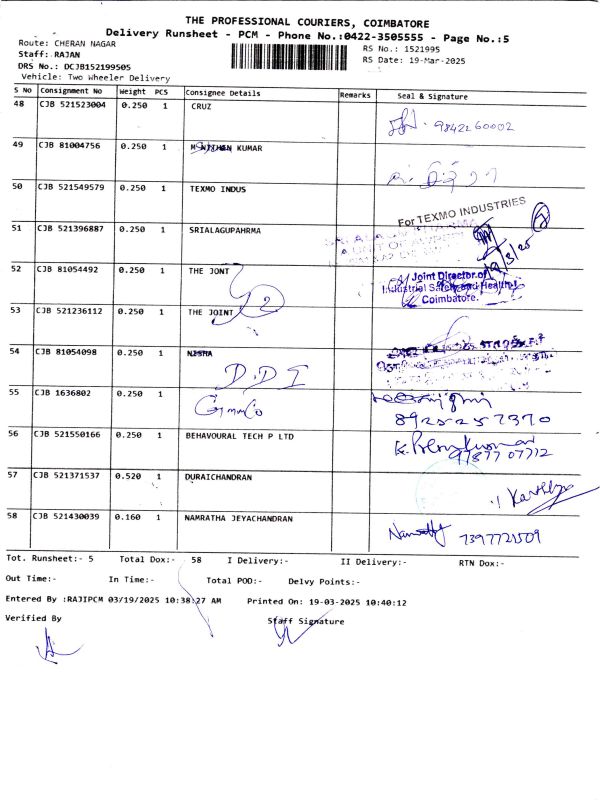 THE PROFESSIONAL COURIERS, COIMBATORE
Delivery Runsheet - PCM - Phone No.:0422-3505555 - Page No.:5
Route: CHERAN NAGAR
RS No.: 1521995
Staff: RAJAN
RS Date: 19-Mar-2025
DRS No.: DCJB152199505
Vehicle: Two Wheeler Delivery
S No Consignment No Weight PCS Consignee Details Remarks Seal & Signature
48 CJB 521523004 0.250 1 CRUZ
9842260002
49 CJB 81004756 0.250 1 KUMAR
50 CJB 521549579 0.250 1 TEXMO INDUS
For TEXMO INDUSTRIES
51 CJB 521396887 0.250 1 SRIALAGUPAHRMA
19/3/25
52 CJB 81054492 0.250 1 THE JONT
Joint Director of
Industrial Safety and Health-I
Coimbatore.
2
53 CJB 521236112 0.250 1 THE JOINT
54 CJB 81054098 0.250 1 NISHA
D.D I
55 CJB 1636802 0.250 1
8925257370
56 CJB 521550166 0.250 1 BEHAVOURAL TECH P LTD
9787707712
57 CJB 521371537 0.520 1 DURAICHANDRAN
58 CJB 521430039 0.160 1 NAMRATHA JEYACHANDRAN
7397721509
Tot. Runsheet:- 5 Total Dox:- 58 I Delivery:- II Delivery:- RTN Dox:-
Out Time:- In Time:- Total POD:- Delvy Points:-
Entered By :RAJIPCM 03/19/2025 10:38:27 AM Printed On: 19-03-2025 10:40:12
Verified By Staff Signature